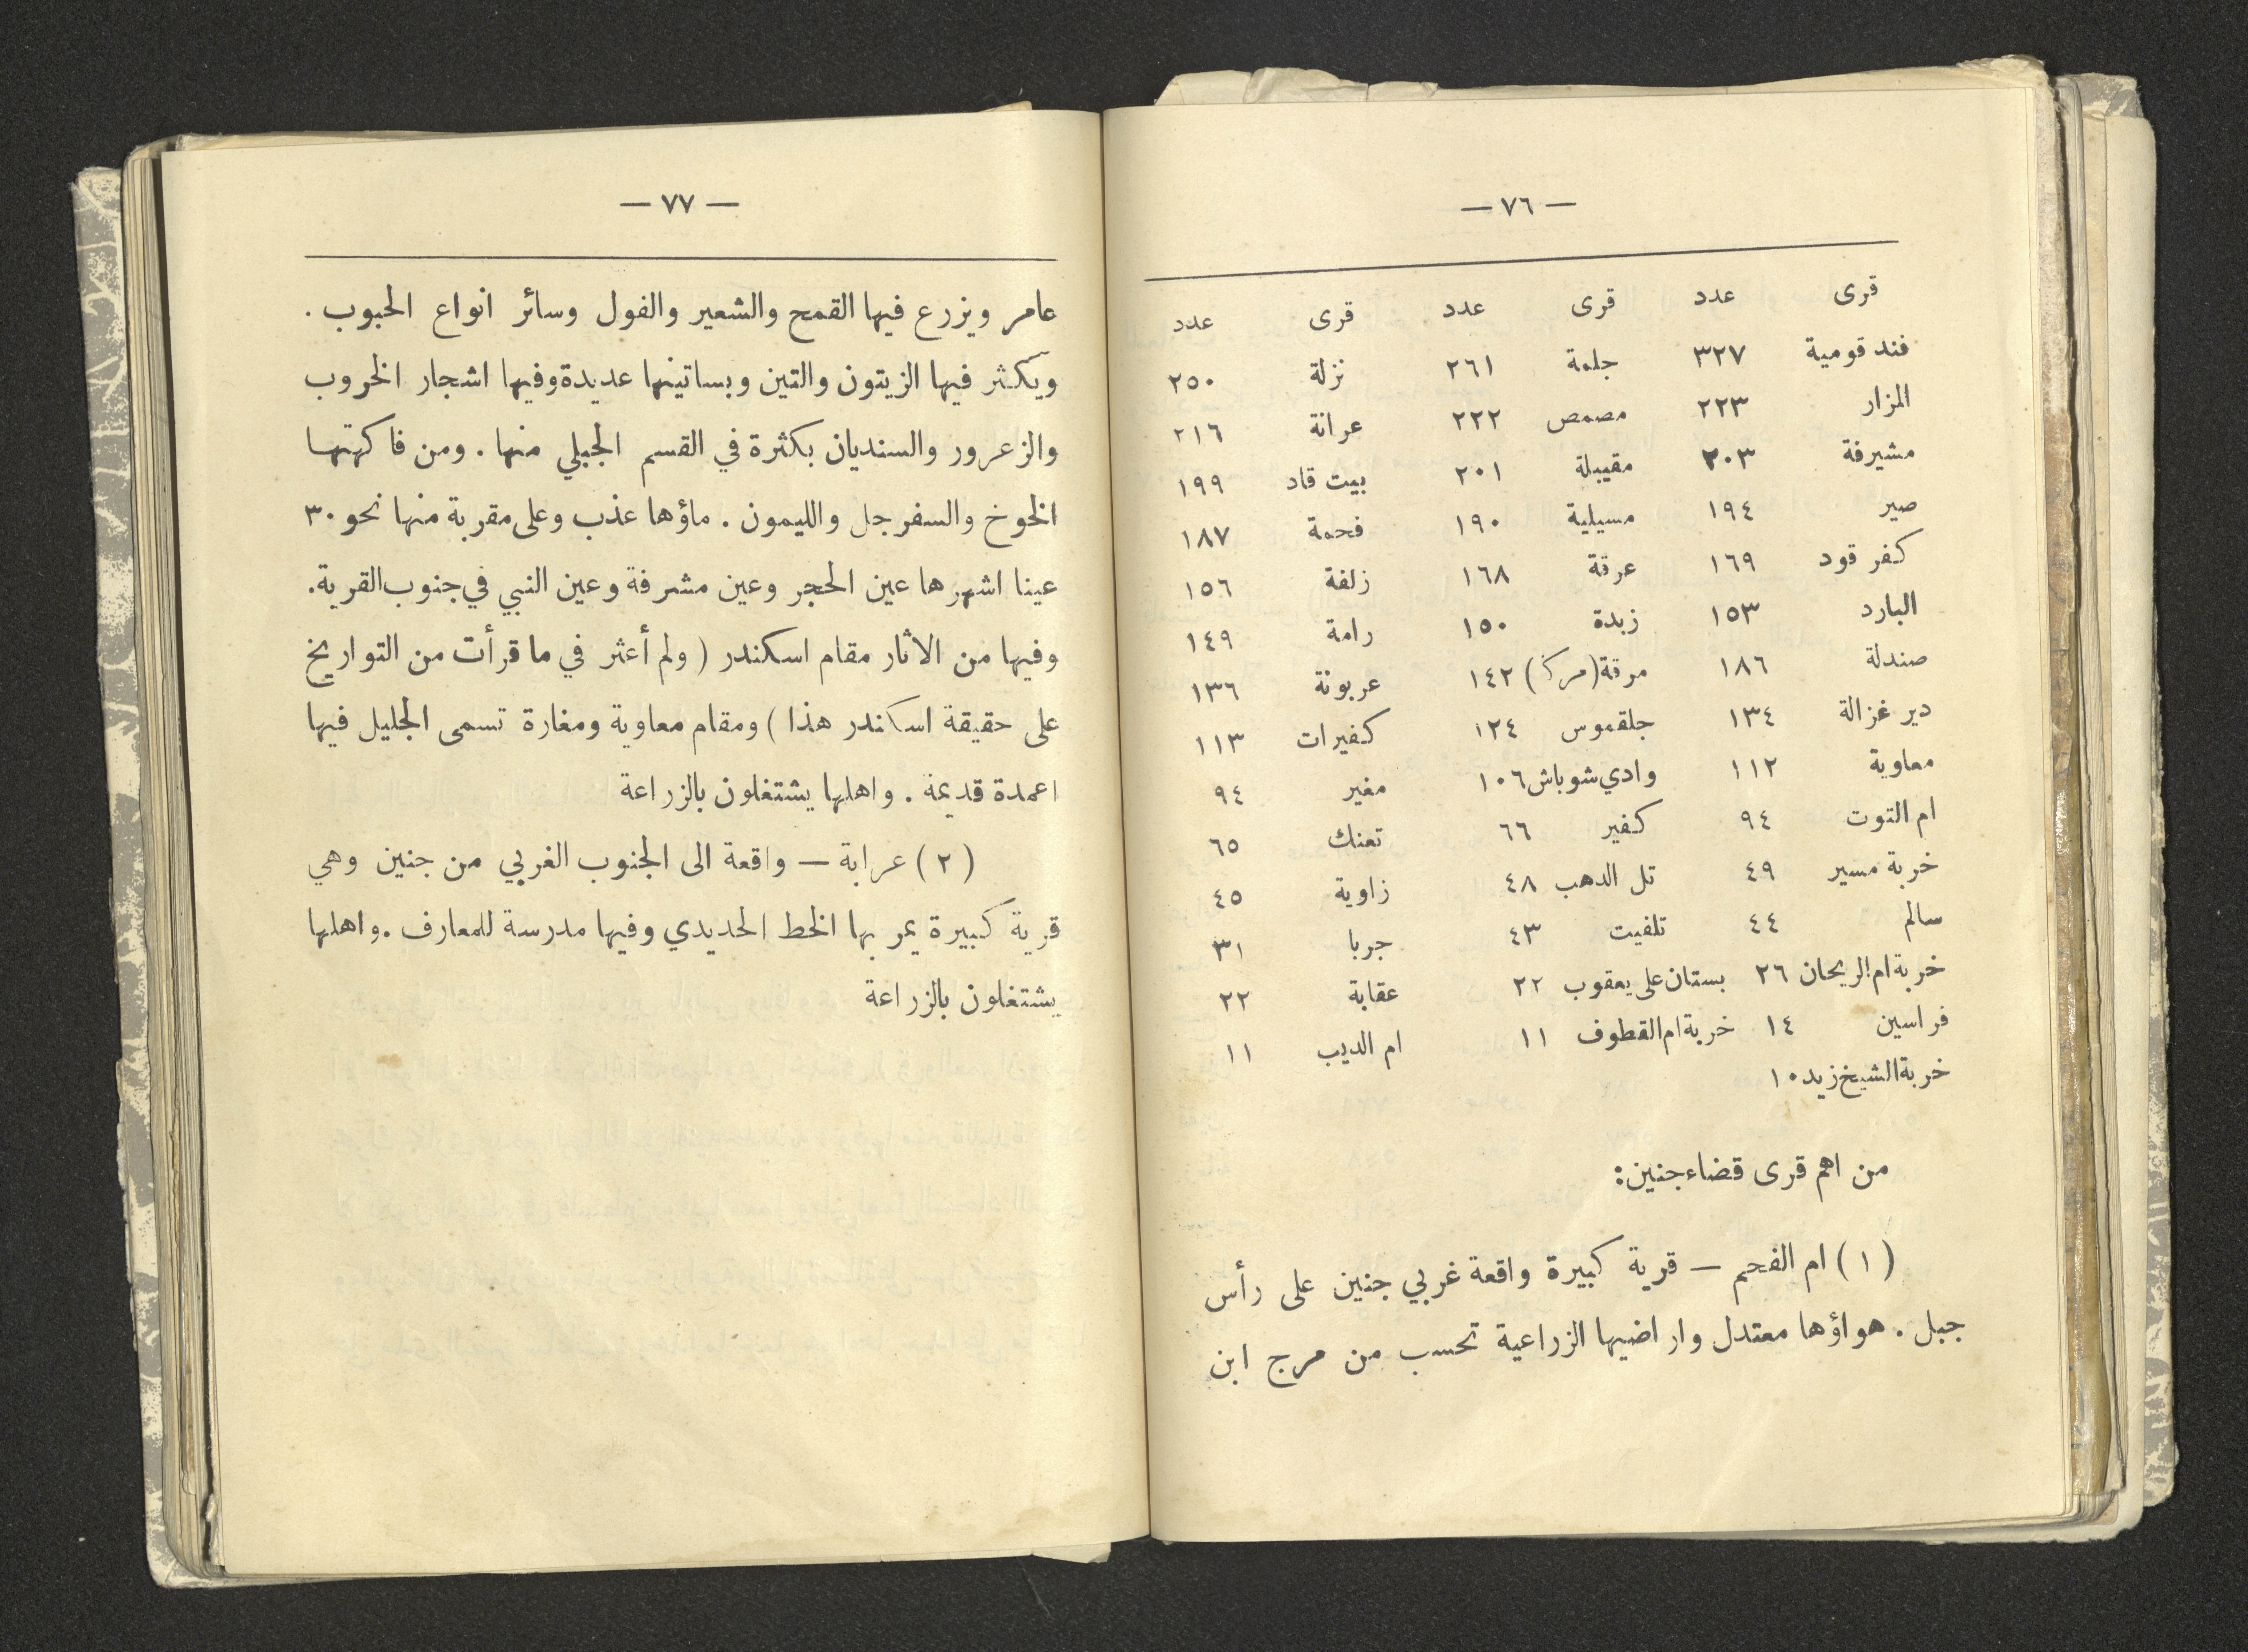 — ٧٦ —
قرى عدد قرى عدد قرى عدد
فندقومية ٣٢٧ جلمة ٢٦١ نزلة ٢٥٠
المزار ٢٢٣ مصمص ٢٢٢ عرانة ٢١٦
مشيرفة ٢٠٣ مقيبلة ٢٠١ بيت قاد ١٩٩
صير ١٩٤ مسيلية ١٩٠ فحمة ١٨٧
كفر قود ١٦٩ عرقة ١٦٨ زلفة ١٥٦
البارد ١٥٣ زبدة ١٥٠ رامة ١٤٩
صندلة ١٨٦ مرقة (مركز) ١٤٢ عربونة ١٣٦
دير غزالة ١٣٤ جلقموس ١٢٤ كفيرات ١١٣
معاوية ١١٢ وادي شوباش ١٠٦ مغير ٩٤
ام التوت ٩٤ كفير ٦٦ تعنك ٦٥
خربة مسير ٤٩ تل الدهب ٤٨ زاوية ٤٥
سالم ٤٤ تلفيت ٤٣ جربا ٣١
خربة ام الريحان ٢٦ بستان على يعقوب ٢٢ عقابة ٢٢
فراسين ١٤ خربة ام القطوف ١١ ام الديب ١١
خربة الشيخ زيد ١٠
من اهم قرى قضاء جنين:
(١) ام الفحم — قرية كبيرة واقعة غربي جنين على رأس
جبل. هواؤها معتدل واراضيها الزراعية تحسب من مرج ابن
— ٧٧ —
عامر ويزرع فيها القمح والشعير والفول وسائر انواع الحبوب.
ويكثر فيها الزيتون والتين وبساتينها عديدة وفيها اشجار الخروب
والزعرور والسنديان بكثرة في القسم الجبلي منها. ومن فاكهتها
الخوخ والسفرجل والليمون. ماؤها عذب وعلى مقربة منها نحو ٣٠
عينا اشهرها عين الحجر وعين مشرفة وعين النبي في جنوب القرية.
وفيها من الاثار مقام اسكندر (ولم أعثر في ما قرأت من التواريخ
على حقيقة اسكندر هذا) ومقام معاوية ومغارة تسمى الجليل فيها
اعمدة قديمة. واهلها يشتغلون بالزراعة
(٢) عرابة — واقعة الى الجنوب الغربي من جنين وهي
قرية كبيرة يمر بها الخط الحديدي وفيها مدرسة للمعارف. واهلها
يشتغلون بالزراعة